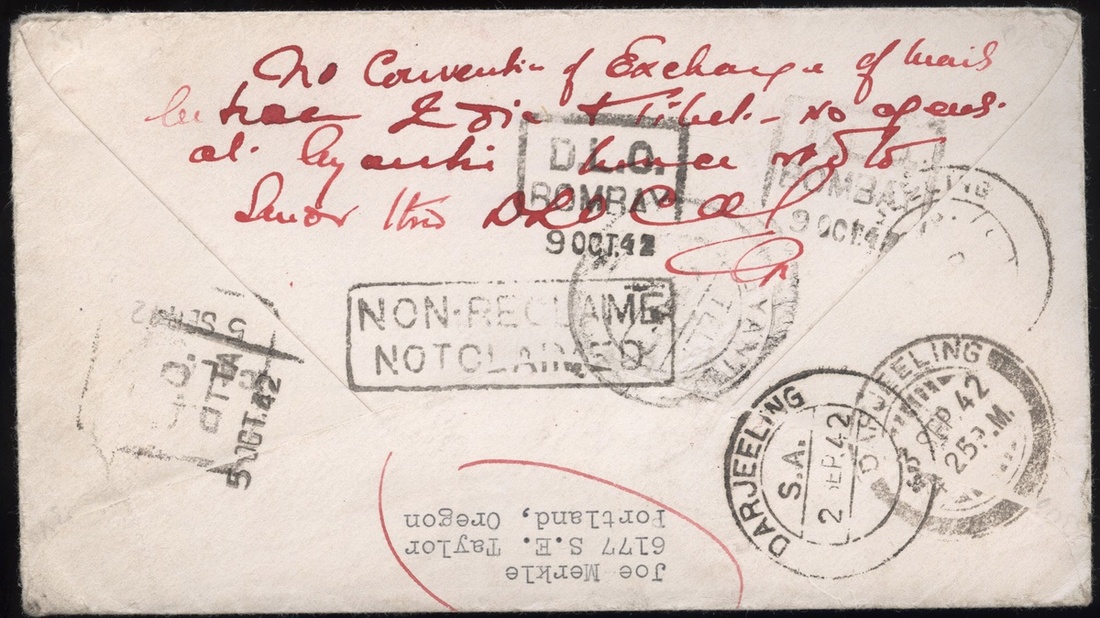 No Convention of Exchange of mails
between India & Tibet - no agent
at Gyantse hence rtd to
Sender thro DLO Cal
D.L.O.
BOMBAY
9 OCT.42
BOMBAY
9 OCT.42
NON-RECLAME
NOT CLAIMED
5 SEP.42
D.L.O.
5 OCT.42
DARJEELING
S.A.
2 SEP.42
DARJEELING
SEP.42
Joe Merkle
6177 S.E. Taylor
Portland, Oregon